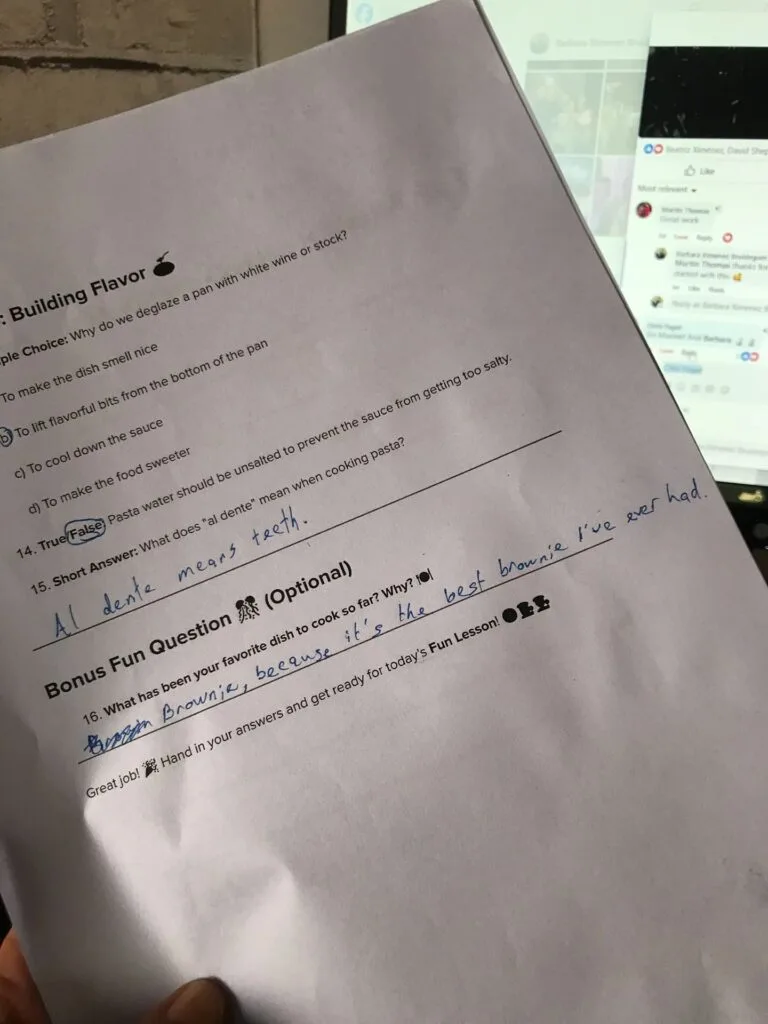 : Building Flavor
ple Choice: Why do we deglaze a pan with white wine or stock?
To make the dish smell nice
b) To lift flavorful bits from the bottom of the pan
c) To cool down the sauce
d) To make the food sweeter
14. True/False: Pasta water should be unsalted to prevent the sauce from getting too salty.
15. Short Answer: What does "al dente" mean when cooking pasta?
Al dente means teeth.
Bonus Fun Question (Optional)
16. What has been your favorite dish to cook so far? Why?
Brownie, because it's the best brownie I've ever had.
Great job! Hand in your answers and get ready for today's Fun Lesson!
Beatriz Ximenez, David Shep
Like
Most relevant
Martin Thomas
Reply